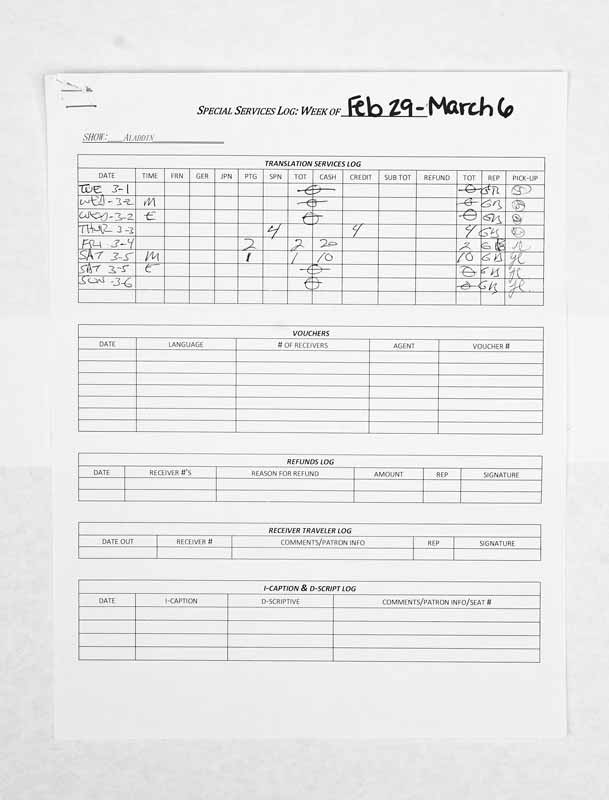 SPECIAL SERVICES LOG: WEEK OF Feb 29-March 6
SHOW: ALADDIN
TRANSLATION SERVICES LOG
DATE TIME FRN GER JPN PTG SPN TOT CASH CREDIT SUB TOT REFUND TOT REP PICK-UP
TUE 3-1 0 0 GB
WED 3-2 M 0 0 GB
WED 3-2 E 0 0 GB
THUR 3-3 4 4 4 GB
FRI 3-4 2 2 20 2 GB
SAT 3-5 M 1 1 10 10 GB
SAT 3-5 E 0 0 GB
SUN 3-6 0 0 GB
VOUCHERS
DATE LANGUAGE # OF RECEIVERS AGENT VOUCHER #
REFUNDS LOG
DATE RECEIVER #'S REASON FOR REFUND AMOUNT REP SIGNATURE
RECEIVER TRAVELER LOG
DATE OUT RECEIVER # COMMENTS/PATRON INFO REP SIGNATURE
I-CAPTION & D-SCRIPT LOG
DATE I-CAPTION D-SCRIPTIVE COMMENTS/PATRON INFO/SEAT #